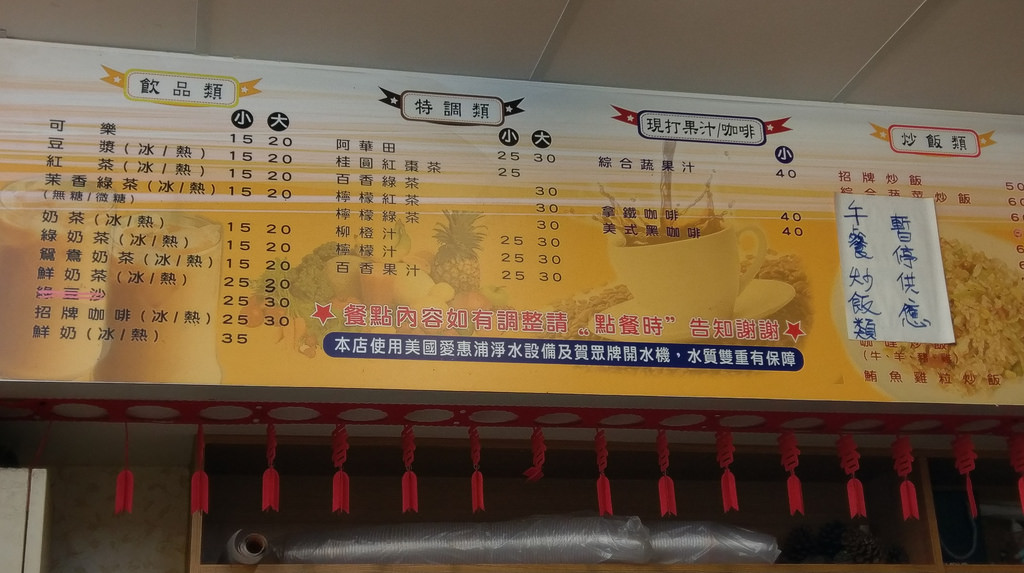 飲品類
小 大
可樂 15 20
豆漿(冰/熱) 15 20
紅茶(冰/熱) 15 20
茉香綠茶(冰/熱) 15 20
(無糖/微糖)
奶茶(冰/熱) 15 20
綠奶茶(冰/熱) 15 20
鴛鴦奶茶(冰/熱) 15 20
鮮奶茶(冰/熱) 25 30
綠豆沙 25 30
招牌咖啡(冰/熱) 25 30
鮮奶(冰/熱) 35
特調類
小 大
阿華田 25 30
桂圓紅棗茶 25
百香綠茶 30
檸檬紅茶 30
檸檬綠茶 30
柳橙汁 25 30
檸檬汁 25 30
百香果汁 25 30
現打果汁/咖啡
小
綜合蔬果汁 40
拿鐵咖啡 40
美式黑咖啡 40
★餐點內容如有調整請"點餐時"告知謝謝★
本店使用美國愛惠浦淨水設備及賀眾牌開水機,水質雙重有保障
炒飯類
招牌炒飯 50
綜合蔬菜炒飯
鮪魚雞粒炒飯
午餐炒飯類
暫停供應